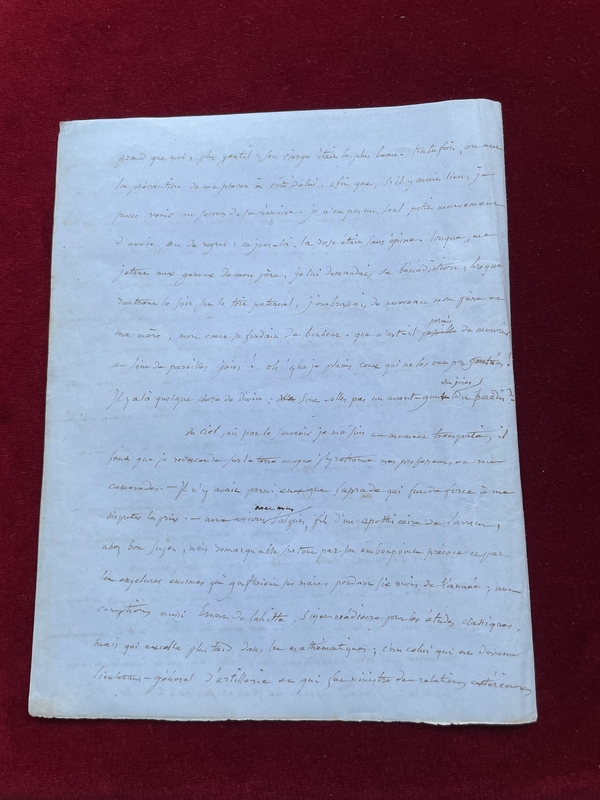 grand que moi, plus gentil - son cierge était le plus beau. toutefois, on eut
la précaution de me placer à côté de lui, afin que, s'il y avait lieu, je
pusse venir au secours de sa mémoire - je n'eus pas un seul petit mouvement
d'envie, ou de regret ; ce jour là, la rose était sans épines. lorsque, me
jetant aux genoux de mon père, je lui demandai sa bénédiction, lorsque
rentrant le soir sous le toit paternel, j'embrassai de nouveau mon père et
ma mère, mon cœur se fondait de bonheur. que n'est-il permis de mourir
au sein de pareilles joies ! oh ! que je plains ceux qui ne les ont pas goûtées !
Il y a là quelque chose de divin ; ne sont-elles pas un avant-goût des joies du paradis ?
du ciel, où par le souvenir je me suis un moment transporté, il
faut que je redescende sur la terre et que j'y retrouve mes professeurs, et mes
camarades. - Il n'y avait parmi eux que Laprade qui fut de force à me
disputer les prix. - nous avions avec nous Salgues, fils d'un apothicaire de Lavaur,
assez bon sujet, mais remarquable surtout par un embonpoint précoce et par
les engelures énormes qui gonflaient ses mains pendant six mois de l'année ; nous
comptions aussi Ernest de Lahitte, sujet médiocre pour les études classiques,
mais qui excella plus tard dans les mathématiques ; c'est celui qui est devenu
lieutenant-général d'artillerie et qui fut ministre des relations extérieures